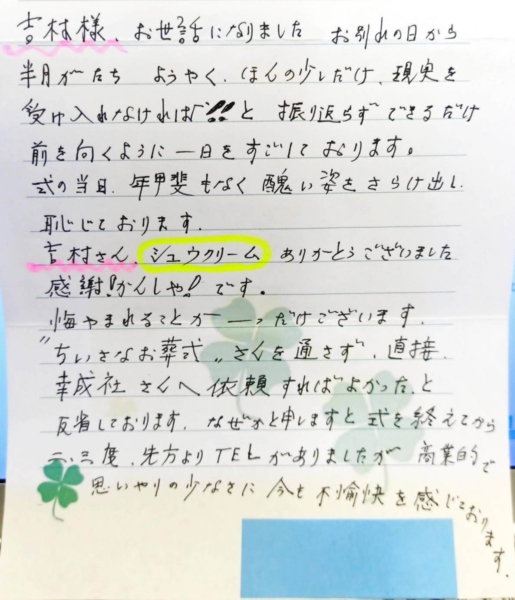 吉村様、お世話になりました お別れの日から
半月がたち ようやく、ほんの少しだけ、現実を
受け入れなければ!!と 振り返らず できるだけ
前を向くように一日をすごしております。
式の当日、年甲斐もなく醜い姿をさらけ出し、
恥じております。
吉村さん、シュウクリーム ありがとうございました
感謝!かんしゃ!です。
悔やまれることが一つだけございます、
"ちいさなお葬式„さんを通さず、直接、
幸成社さんへ依頼すればよかった、と
反省しております、なぜかと申しますと式を終えてから
二、三度、先方よりTELがありましたが 商業的で
思いやりの少なさに 今も不愉快を感じております。